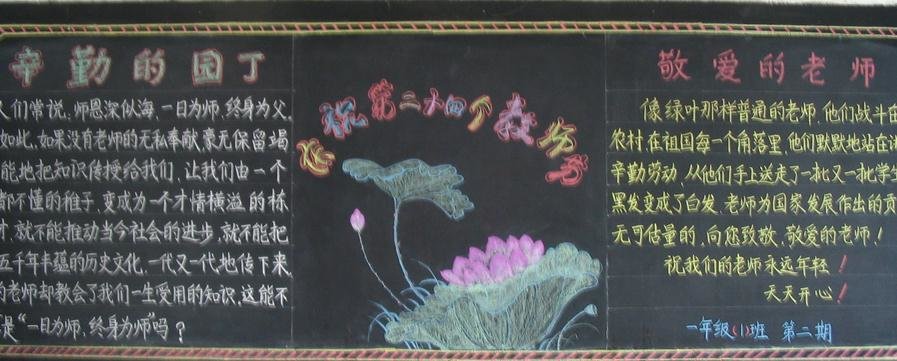 辛勤的园丁
人们常说，师恩深似海，一日为师，终身为父
如此，如果没有老师的无私奉献，毫无保留竭
能地把知识传授给我们，让我们由一个
都不懂的稚子，变成为一个才情横溢的栋
才，就不能推动当今社会的进步，就不能把
五千年丰蕴的历史文化，一代又一代地传下来，
的老师却教会了我们一生受用的知识，这能不
是“一日为师，终身为师”吗？
祝第二十四个教师节
敬爱的老师
像绿叶那样普通的老师，他们战斗在
农村，在祖国每一个角落里，他们默默地站在讲
辛勤劳动，从他们手上送走了一批又一批学生
黑发变成了白发，老师为国家发展作出的贡
无可估量的，向您致敬，敬爱的老师！
祝我们的老师永远年轻！
天天开心！
一年级(1)班 第二期